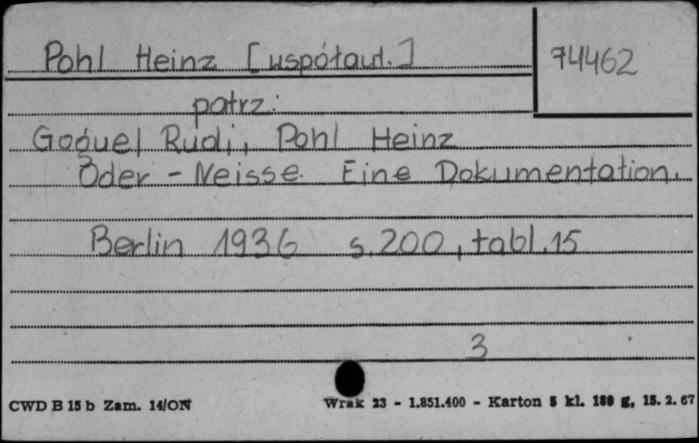 Pohl Heinz [współaut.]
74462
patrz:
Goguel Rudi, Pohl Heinz
Oder - Neisse. Eine Dokumentation.
Berlin 1936 s.200, tabl.15
3
CWD B 15 b Zam. 14/ON Wrak 23 - 1.851.400 - Karton 5 kl. 180 g, 15. 2. 67